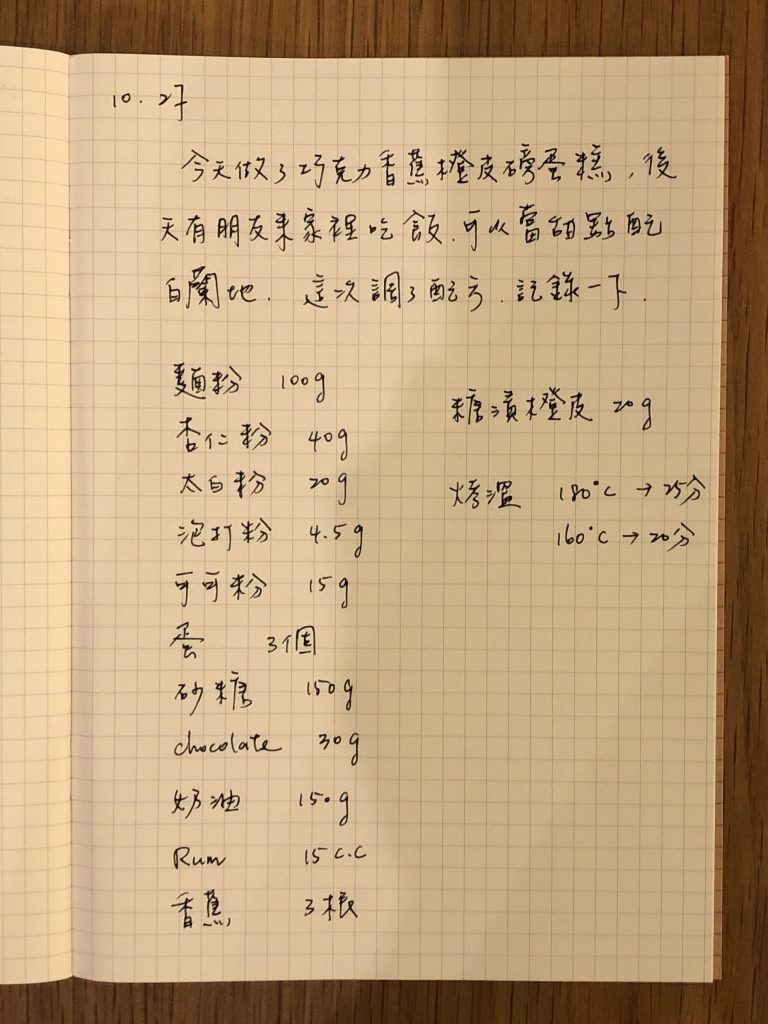 10.27
今天做了巧克力香蕉橙皮磅蛋糕,後
天有朋友來家裡吃飯.可以當甜點配
白蘭地. 這次調了配方.記錄一下.
麵粉 100g
杏仁粉 40g
太白粉 20g
泡打粉 4.5g
可可粉 15g
蛋 3個
砂糖 150g
chocolate 30g
奶油 150g
Rum 15 c.c
香蕉 3根
糖漬橙皮 20g
烤溫 180°C → 25分
160°C → 20分